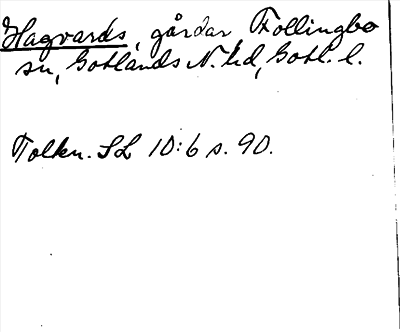 Hagvards, gårdar Follingbo
sn, Gotlands N. hd, Gotl. l.
Tolkn. SL 10:6 s. 90.